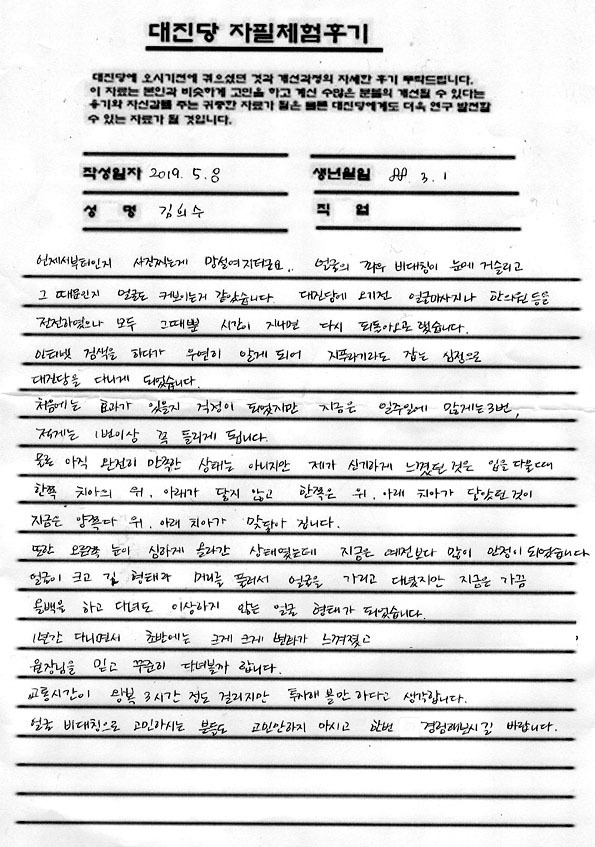 대진당 자필체험후기
대진당에 오시기전에 겪으셨던 것과 개선과정의 자세한 후기 부탁드립니다.
이 자료는 본인과 비슷하게 고민을 하고 계신 수많은 분들의 개선될 수 있다는
용기와 자신감를 주는 귀중한 자료가 됨은 물론 대진당에게도 더욱 연구 발전할
수 있는 자료가 될 것입니다.
작성일자 2019. 5. 8 생년월일 88. 3. 1
성 명 김희수 직 업
언제서부터인지 사진찍는게 망설여지더군요.. 얼굴의 좌우 비대칭이 눈에 거슬리고
그 때문인지 얼굴도 커보이는거 같았습니다. 대진당에 오기전 얼굴마사지나 한의원 등을
전전하였으나 모두 그때뿐 시간이 지나면 다시 되돌아오곤 했습니다.
인터넷 검색을 하다가 우연히 알게 되어 지푸라기라도 잡는 심정으로
대진당을 다니게 되었습니다.
처음에는 효과가 있을지 걱정이 되었지만 지금은 일주일에 많게는 3번,
적게는 1번이상 꼭 들리게 됩니다.
물론 아직 완전히 만족한 상태는 아니지만 제가 신기하게 느꼈던 것은 입을 다물때
한쪽 치아의 위, 아래가 닿지 않고 한쪽은 위, 아래 치아가 닿았던 것이
지금은 양쪽다 위, 아래 치아가 맞닿아 집니다.
또한 오른쪽 눈이 심하게 올라간 상태였는데 지금은 예전보다 많이 안정이 되었습니다
얼굴이 크고 긴 형태라 머리를 풀러서 얼굴을 가리고 다녔지만 지금은 가끔
올백을 하고 다녀도 이상하지 않는 얼굴 형태가 되었습니다.
1년간 다니면서 초반에는 크게 크게 변화가 느껴졌고
원장님을 믿고 꾸준히 다녀볼까 합니다.
교통시간이 왕복 3시간 정도 걸리지만 투자해 볼만 하다고 생각합니다.
얼굴 비대칭으로 고민하시는 분들도 고민안하지 마시고 한번 경험해보시길 바랍니다.